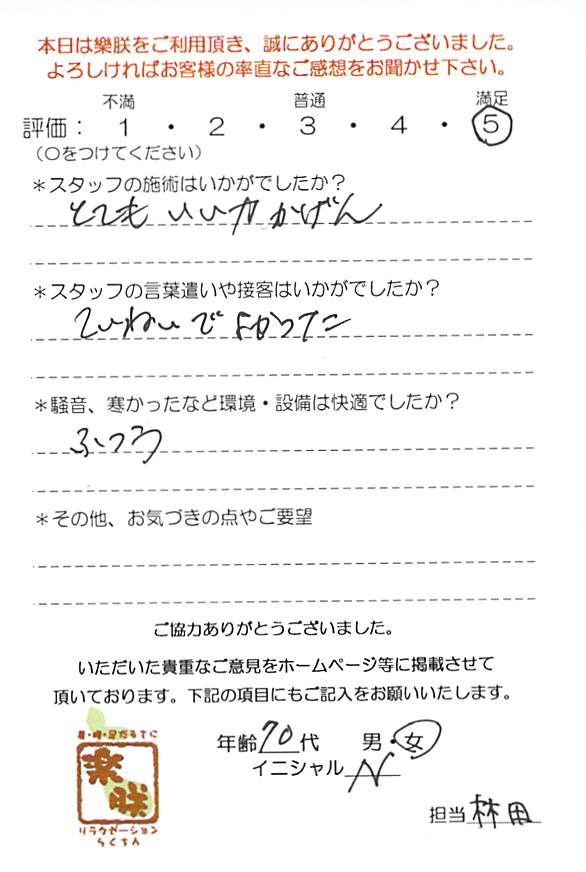 本日は樂朕をご利用頂き、誠にありがとうございました。
よろしければお客様の率直なご感想をお聞かせ下さい。
不満 普通 満足
評価： 1 ・ 2 ・ 3 ・ 4 ・ 5
（○をつけてください）
＊スタッフの施術はいかがでしたか？
とてもいい力かげん
＊スタッフの言葉遣いや接客はいかがでしたか？
ていねいでよかった
＊騒音、寒かったなど環境・設備は快適でしたか？
ふつう
＊その他、お気づきの点やご要望
ご協力ありがとうございました。
いただいた貴重なご意見をホームページ等に掲載させて
頂いております。下記の項目にもご記入をお願いいたします。
年齢 70 代 男・女
イニシャル N
担当 林田
樂
朕
リラクゼーション
らくちん